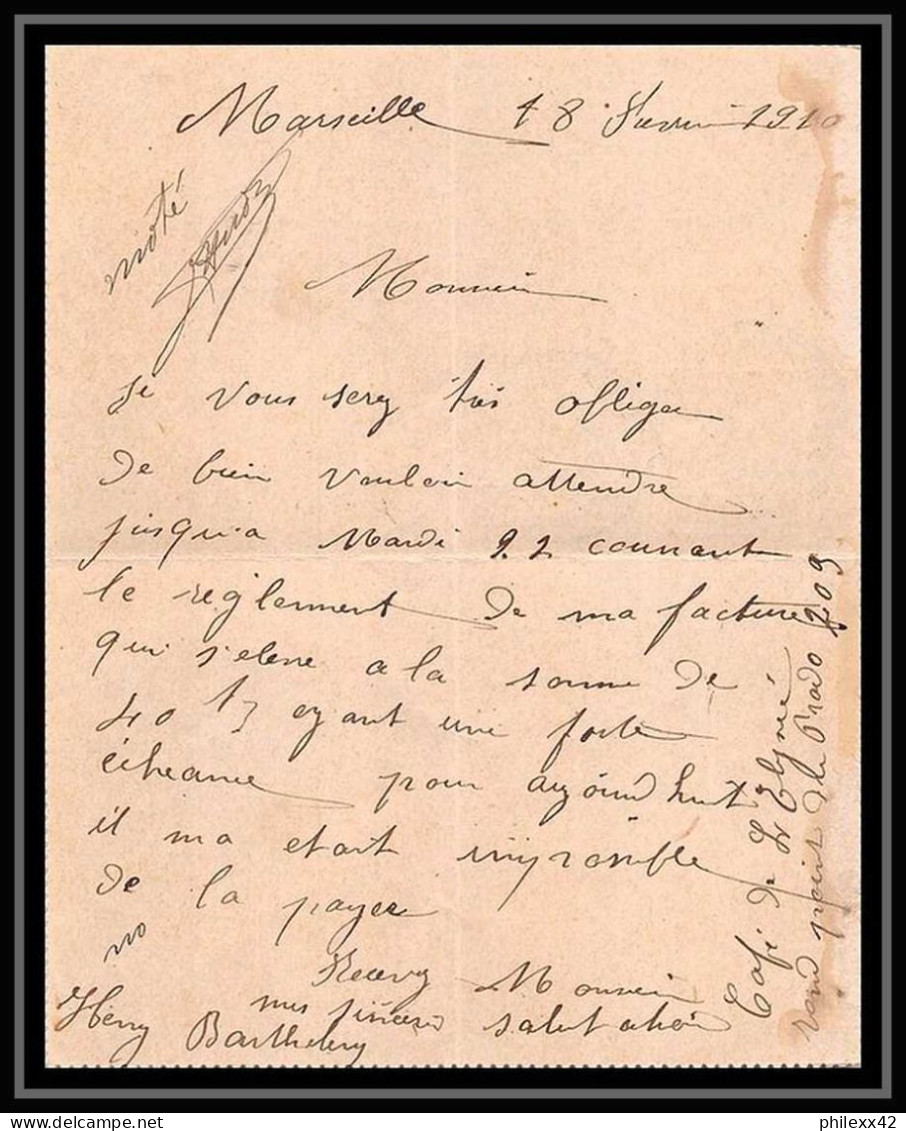 Marseille 18 Fevrier 1910
noté
Monsieur
Je vous serez très obliger
de bien vouloir attendre
jusqu'a Mardi 22 courant
le reglement de ma facture
qui s'eleve a la somme de
40 f ayant une forte
écheance pour aujourd huit
il ma etait impossible
de la payer
Recevez Monsieur
mes sincere salutation
Henry Barthelemy
Café de L'Elysée
rond point du Prado 209
philexx42